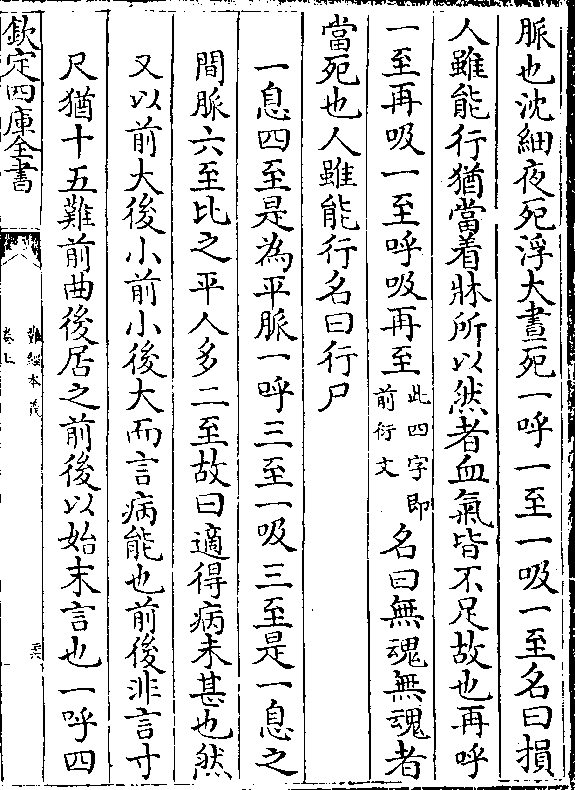 脈也沈細夜死浮大晝死一呼一至一吸一至名曰損
人雖能行猶當着牀所以然者血氣皆不足故也再呼
一至再吸一至呼吸再至此四字即前衍文名曰無魂無魂者
當死也人雖能行名曰行尸
一息四至是為平脈一呼三至一吸三至是一息之
間脈六至比之平人多二至故曰適得病未甚也然
又以前大後小前小後大而言病能也前後非言寸
尺猶十五難前曲後居之前後以始末言也一呼四
欽定四庫全書
難經本義
卷上